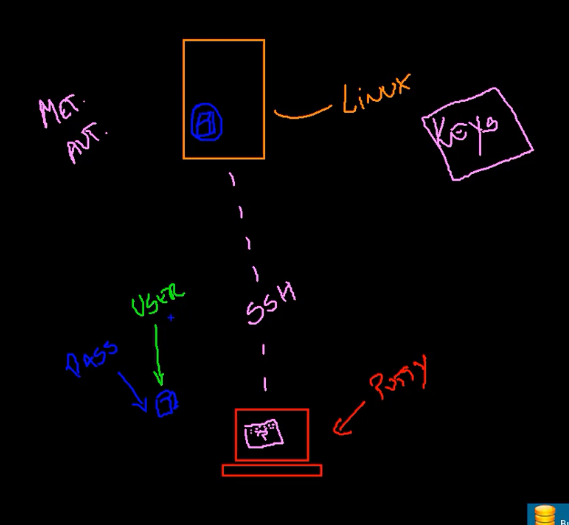 MET.
AUT.
LINUX
Keys
SSH
USER
PASS
PUTTY